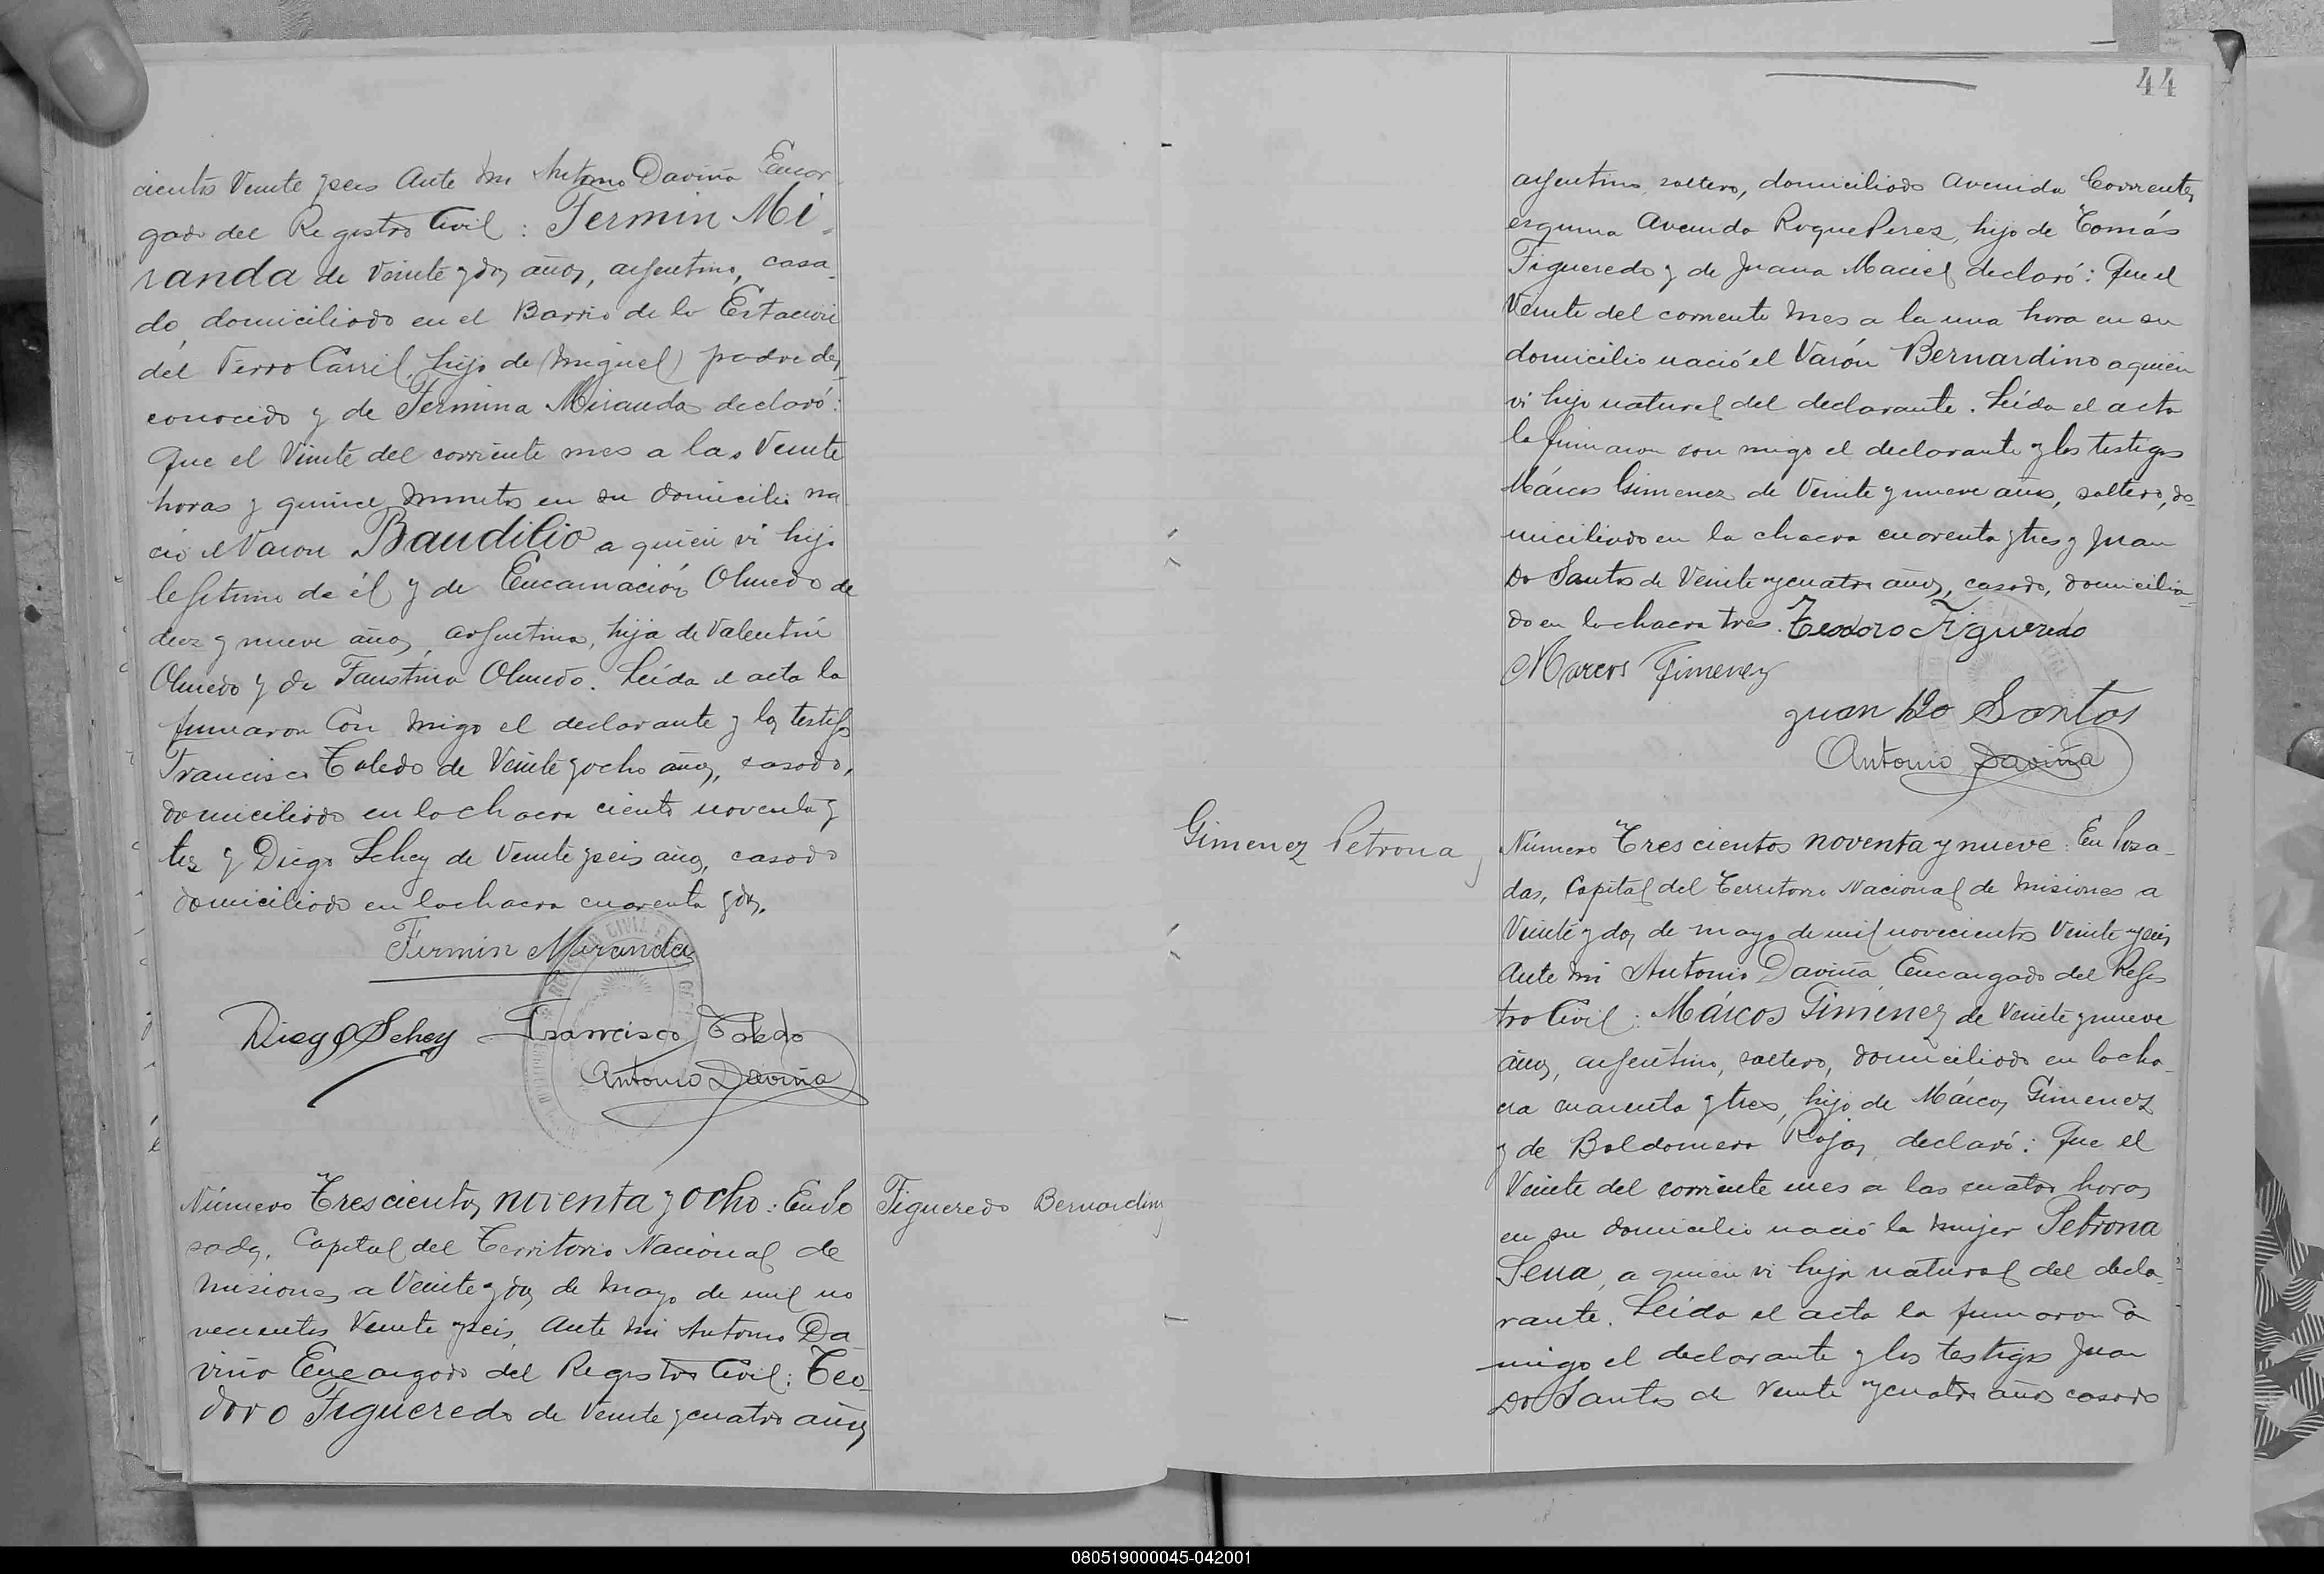 cientos Veinte y seis Ante mi Antonio Daviña Encar
gado del Registro Civil : Fermin Mi
randa de Veinte y dos años, argentino, casa
do, domiciliado en el Barrio de la Estación
del Ferro Carril, hijo de (Miguel) padre des
conocido y de Fermina Miranda declaró:
Que el Veinte del corriente mes a las Veinte
horas y quince minutos en su domicilio na
ció el Varon Baudilio a quien vi hijo
legitimo de él y de Encarnación Olmedo de
diez y nueve años, argentina, hija de Valentín
Olmedo y de Faustina Olmedo. Leída el acta la
firmaron con migo el declarante y los testigos
Francisco Toledo de Veinte y ocho años, casado,
domiciliado en la chacra ciento noventa y
tres y Diego Schey de Veinte y seis años, casado
domiciliado en la chacra cuarenta y dos.
Fermin Miranda
Diego Schey Francisco Toledo
Antonio Daviña
Número Trescientos noventa y ocho : En Po
sadas, Capital del Territorio Nacional de
Misiones a Veinte y dos de Mayo de mil no
vecientos Veinte y seis, Ante mi Antonio Da
viña Encargado del Registro Civil : Teo
doro Figueredo de Veinte y cuatro años
Figueredo Bernardino
44
argentino, soltero, domiciliado Avenida Corrientes
esquina Avenida Roque Perez, hijo de Tomás
Figueredo y de Juana Maciel declaró : Que el
Veinte del corriente mes a la una hora en su
domicilio nació el Varón Bernardino a quien
vi hijo natural del declarante. Leída el acta
la firmaron con migo el declarante y los testigos
Márcos Gimenez de Veinte y nueve años, soltero, do
miciliado en la chacra cuarenta y tres y Juan
Do Santos de Veinte y cuatro años, casado, domicilia
do en la chacra tres. Teodoro Figueredo
Marcos Gimenez
Juan Do Santos
Antonio Daviña
Gimenez Petrona
Número Trescientos noventa y nueve : En Posa-
das, Capital del Territorio Nacional de Misiones a
Veinte y dos de mayo de mil novecientos Veinte y seis
Ante mi Antonio Daviña, Encargado del Regis
tro Civil : Márcos Giménez de Veinte y nueve
años, argentino, soltero, domiciliado en la cha-
cra cuarenta y tres, hijo de Márcos Gimenez
y de Baldomera Rojas, declaró : Que el
Veinte del corriente mes a las cuatro horas
en su domicilio nació la mujer Petrona
Sena, a quien vi hija natural del decla-
rante. Leída el acta la firmaron con
migo el declarante y los testigos Juan
Do Santos de Veinte y cuatro años casado
080519000045-042001